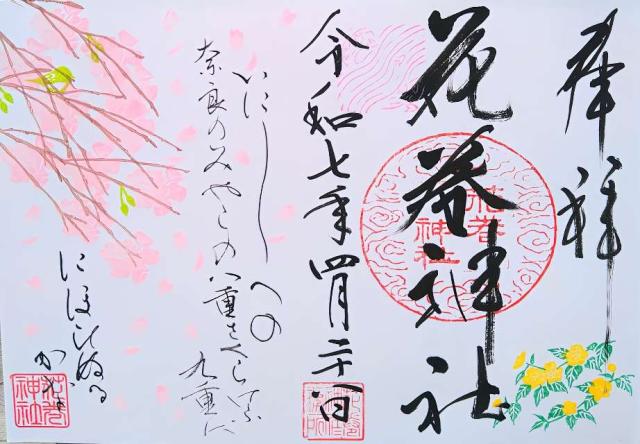 奉拝
花巻神社
花巻
神社
令和七年四月
いにしへの
奈良のみやこの八重さくらけふ
九重に
にほひぬる
かな
花巻
神社